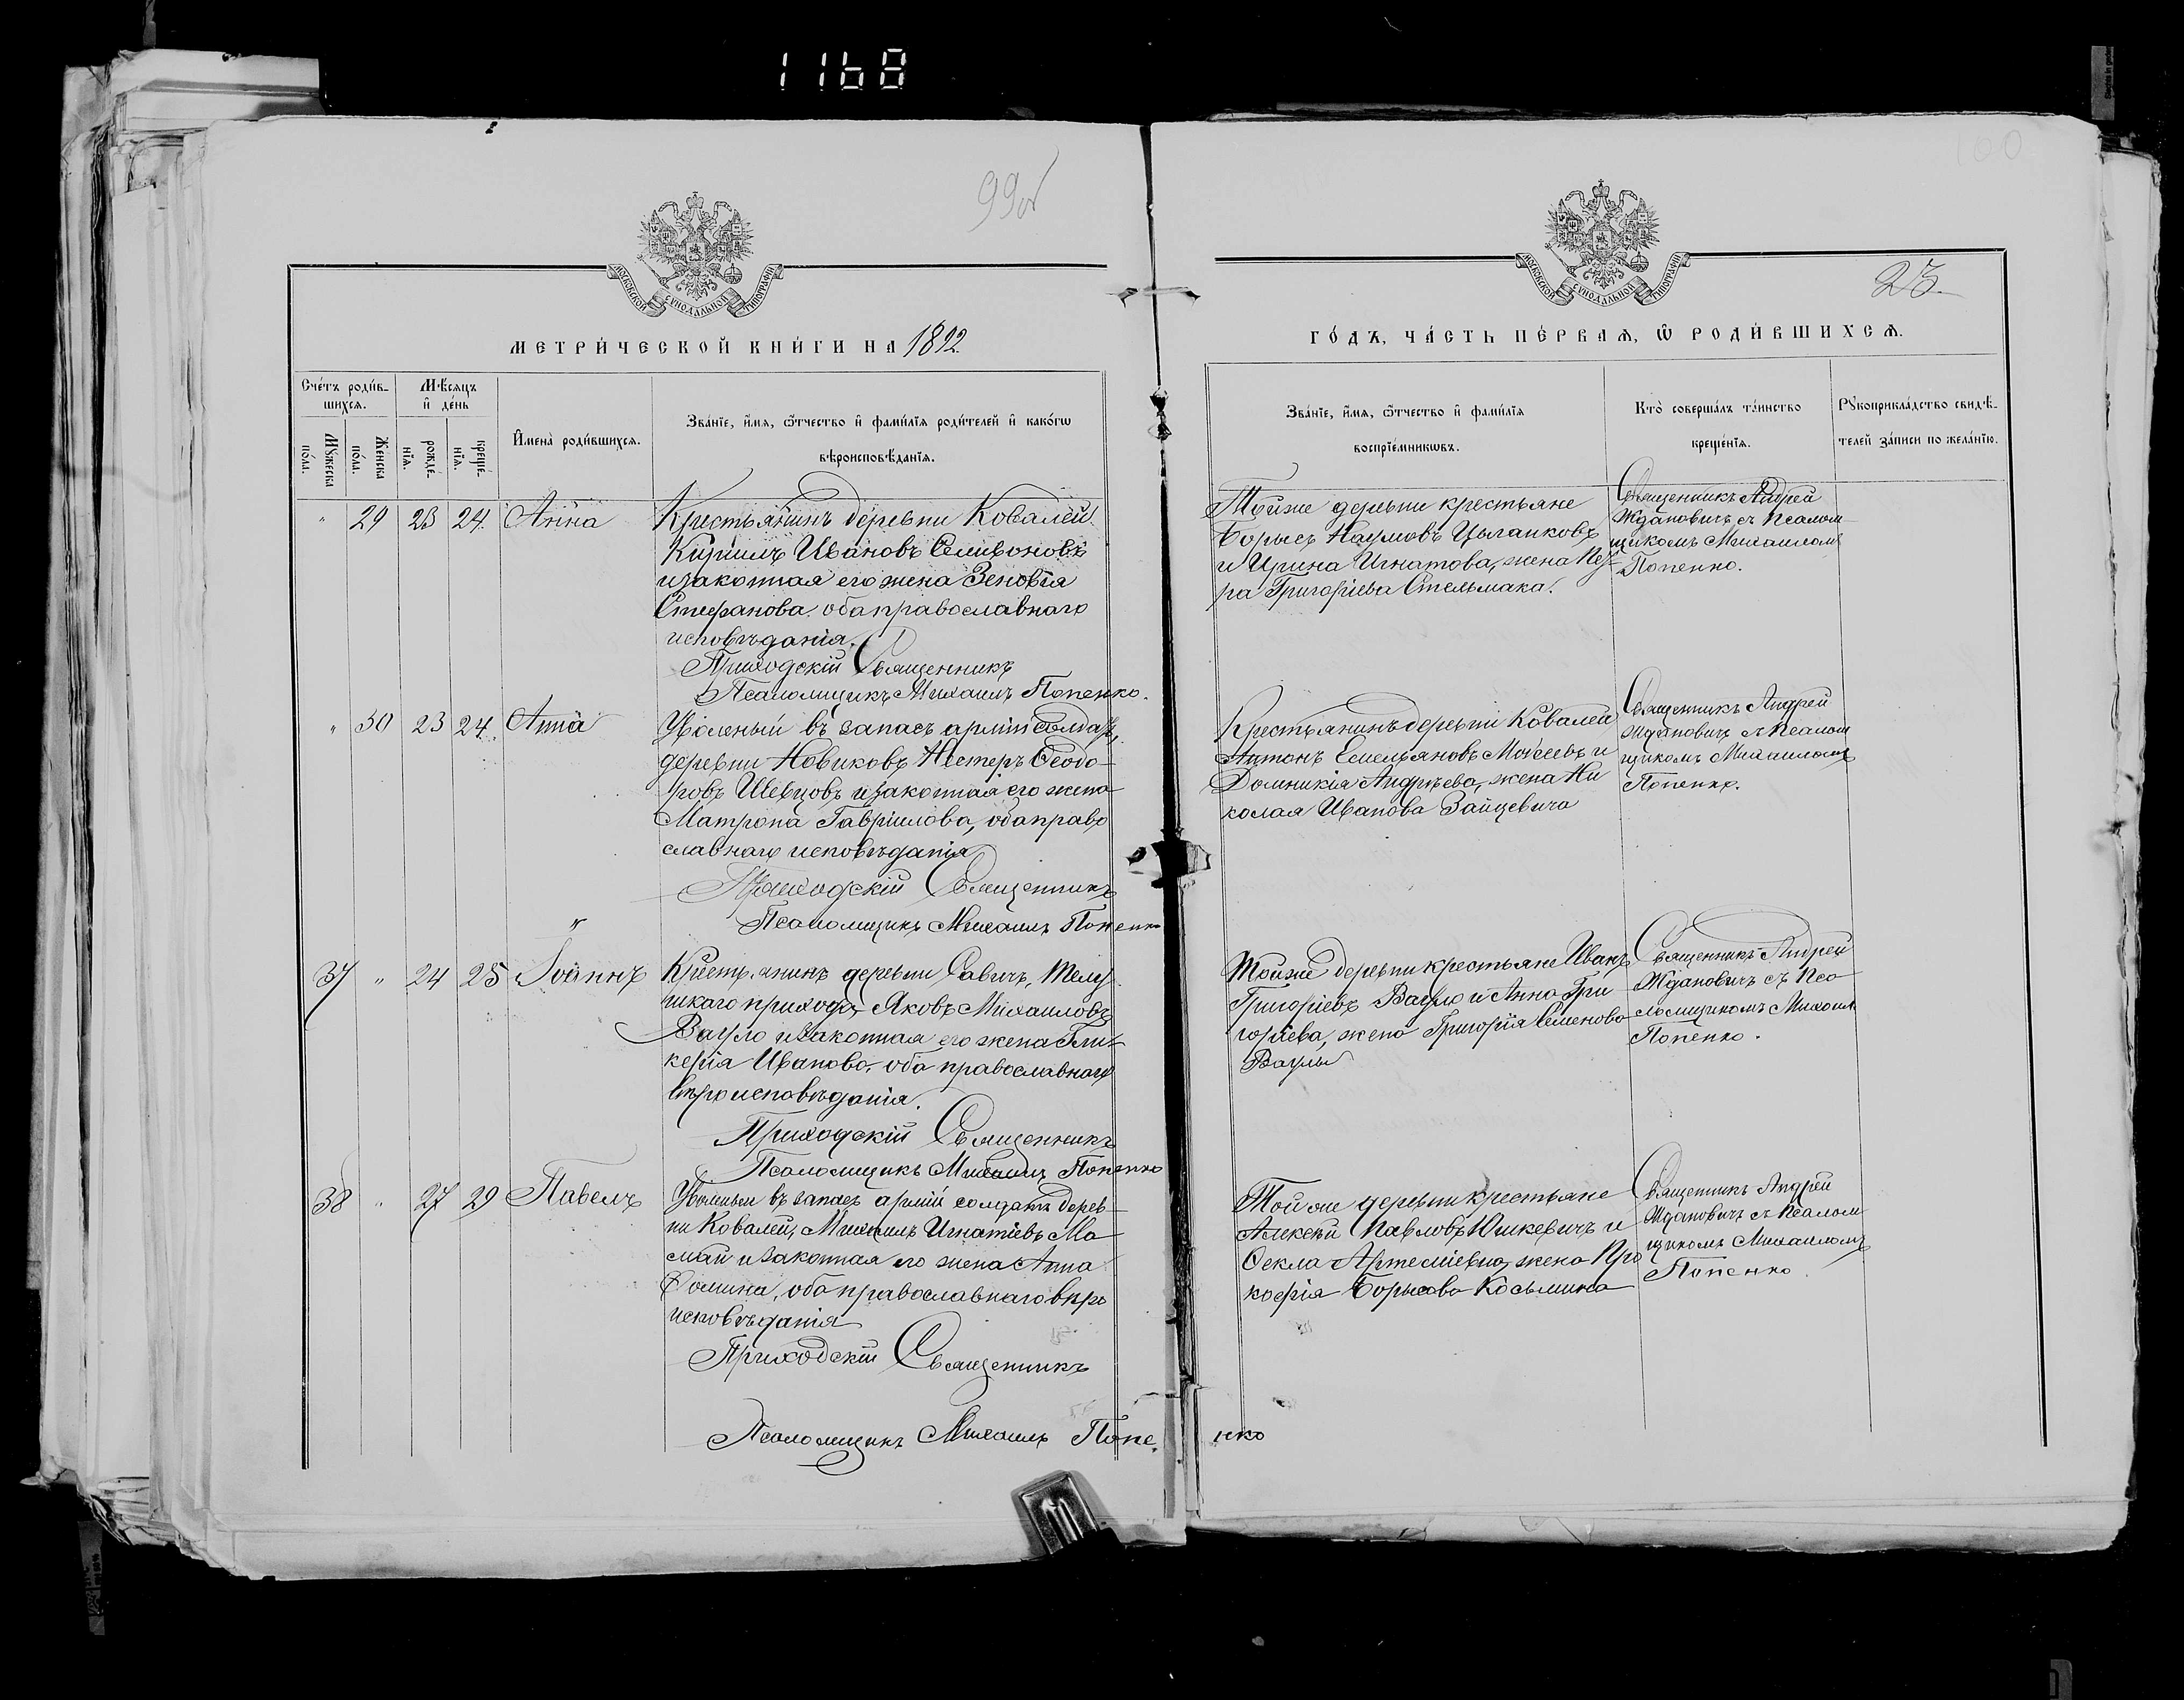 1168
99об
100
МОСКОВСКОЙ СѴНОДАЛЬНОЙ ТИПОГРАФІИ
МЕТРИ́ЧЕСКОЙ КНИ́ГИ НА 1892
Сче́тъ роди́в-
шихсѧ.
Мѣ́сѧцъ
и҆ де́нь
Мꙋ́жеска по́ла.
Же́нска по́ла.
рожде́-
нїѧ.
креще́-
нїѧ.
И҆мена̀ роди́вшихсѧ.
Зва́нїе, и҆́мѧ, ѻ҆́тчество и҆ фами́лїѧ роди́телей и҆ како́гѡ
вѣроисповѣ́данїѧ.
" 29 23 24. Анна
Крестьянинъ деревни Ковалей
Кириллъ Ивановъ Селивоновъ
и законная его жена Зеновія
Стефанова, оба православнаго
исповѣданія.
Приходскій Священникъ
Псаломщикъ Михаилъ Попенко.
" 30 23 24. Анна
Уволеный въ запасъ арміи солдатъ,
деревни Новиковъ Нестеръ Ѳеодо-
ровъ Шевцовъ и законная его жена
Матрона Гавріилова, оба право
славнаго исповѣданія
Приходскій Священникъ
Псаломщикъ Михаилъ Попенко
37 " 24 25 Іоаннъ
Крестьянинъ деревни Савичъ,
прихода, Яковъ Михаиловъ
Вауло и законная его жена Гли-
керія Иванова, оба православнаго
вѣроисповѣданія.
Приходскій Священникъ
Псаломщикъ Михаилъ Попенко
38 " 27 29 Павелъ
въ запасъ арміи солдатъ дерев-
ни Ковалей, Михаилъ Игнатіевъ Ма
май и законная его жена Анна
Фомина, оба православнаго вѣро
исповѣданія
Приходскій Священникъ
Псаломщикъ Михаилъ Попенко
МОСКОВСКОЙ СѴНОДАЛЬНОЙ ТИПОГРАФІИ
23.
ГО́ДЪ, ЧА́СТЬ ПЕ́РВАѦ, Ѡ҆ РОДИ́ВШИХСѦ.
Зва́нїе, и҆́мѧ, ѻ҆́тчество и҆ фами́лїѧ
воспрїе́мникѡвъ.
Кто̀ соверша́лъ та́инство
креще́нїѧ.
Рꙋкоприкла́дство свидѣ́-
телей за́писи по жела́нїю.
Тойже деревни крестьяне
Борисъ Наумовъ Цыганковъ
и Ирина Игнатова, жена Пет-
ра Григоріева Стельмака.
Священникъ Андрей
Ждановичъ съ псалом-
щикомъ Михаиломъ
Попенко.
Крестьянинъ деревни Ковалей
Антонъ Емельяновъ Моисеевъ и
Домникія Андреева, жена Ни
колая Иванова Зайцевича
Священникъ Андрей
Ждановичъ съ псалом
щикомъ Михаиломъ
Попенко.
Тойже деревни крестьяне Иванъ
Григоріевъ Вауло и Анна Гри
горіева, жена Григорія Семенова
Ваулы
Священникъ Андрей
Ждановичъ съ пса-
ломщикомъ Михаил
Попенко.
Той же деревни крестьяне
Алексѣй Павловъ Юшкевичъ и
Ѳекла Артеміевна, жена Про
кофія Борисова Косьмина
Священникъ Андрей
Ждановичъ съ псалом
щикомъ Михаиломъ
Попенко